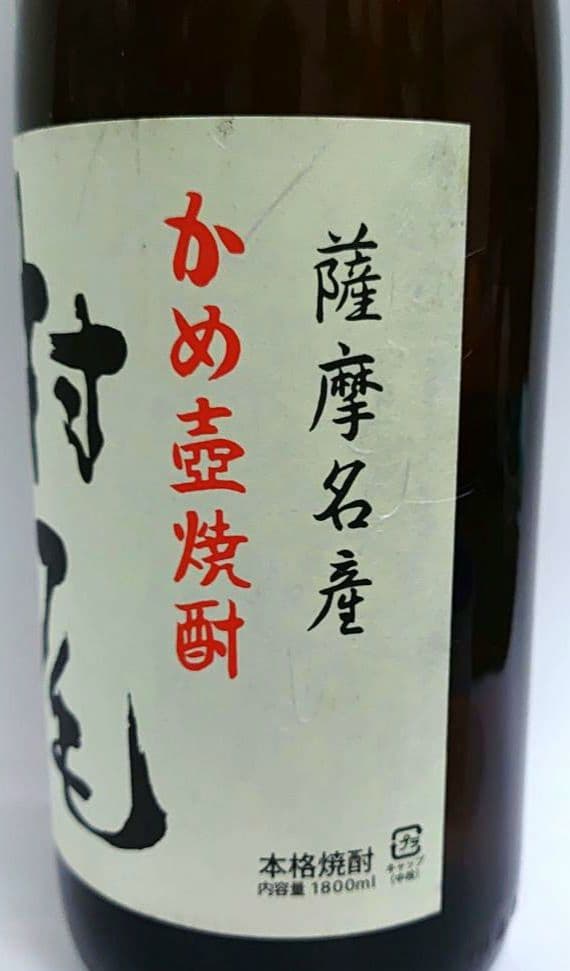 薩摩名産
かめ壺焼酎
村尾
本格焼酎
内容量 1800ml
プラ
キャップ
(中栓)